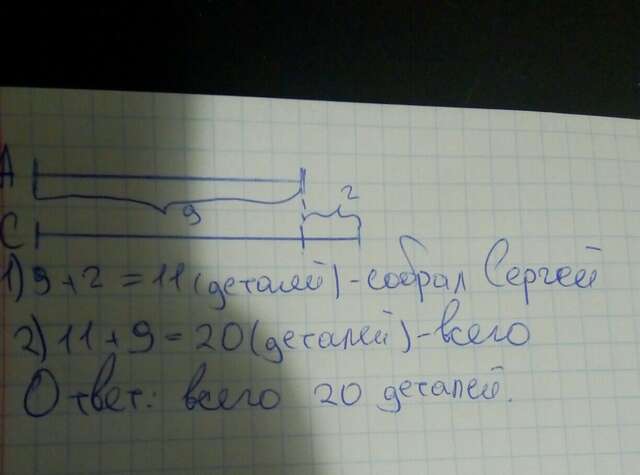 А
2
9
С
1) 9+2=11(деталей)-собрал Сергей
2) 11+9=20(деталей)-всего
Ответ: всего 20 деталей.